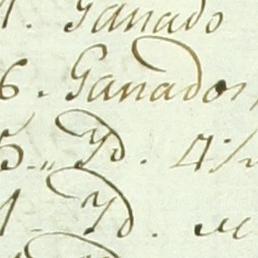 1. Ganado
6. Ganados,
5.. Yd. 4½
1. Yd.